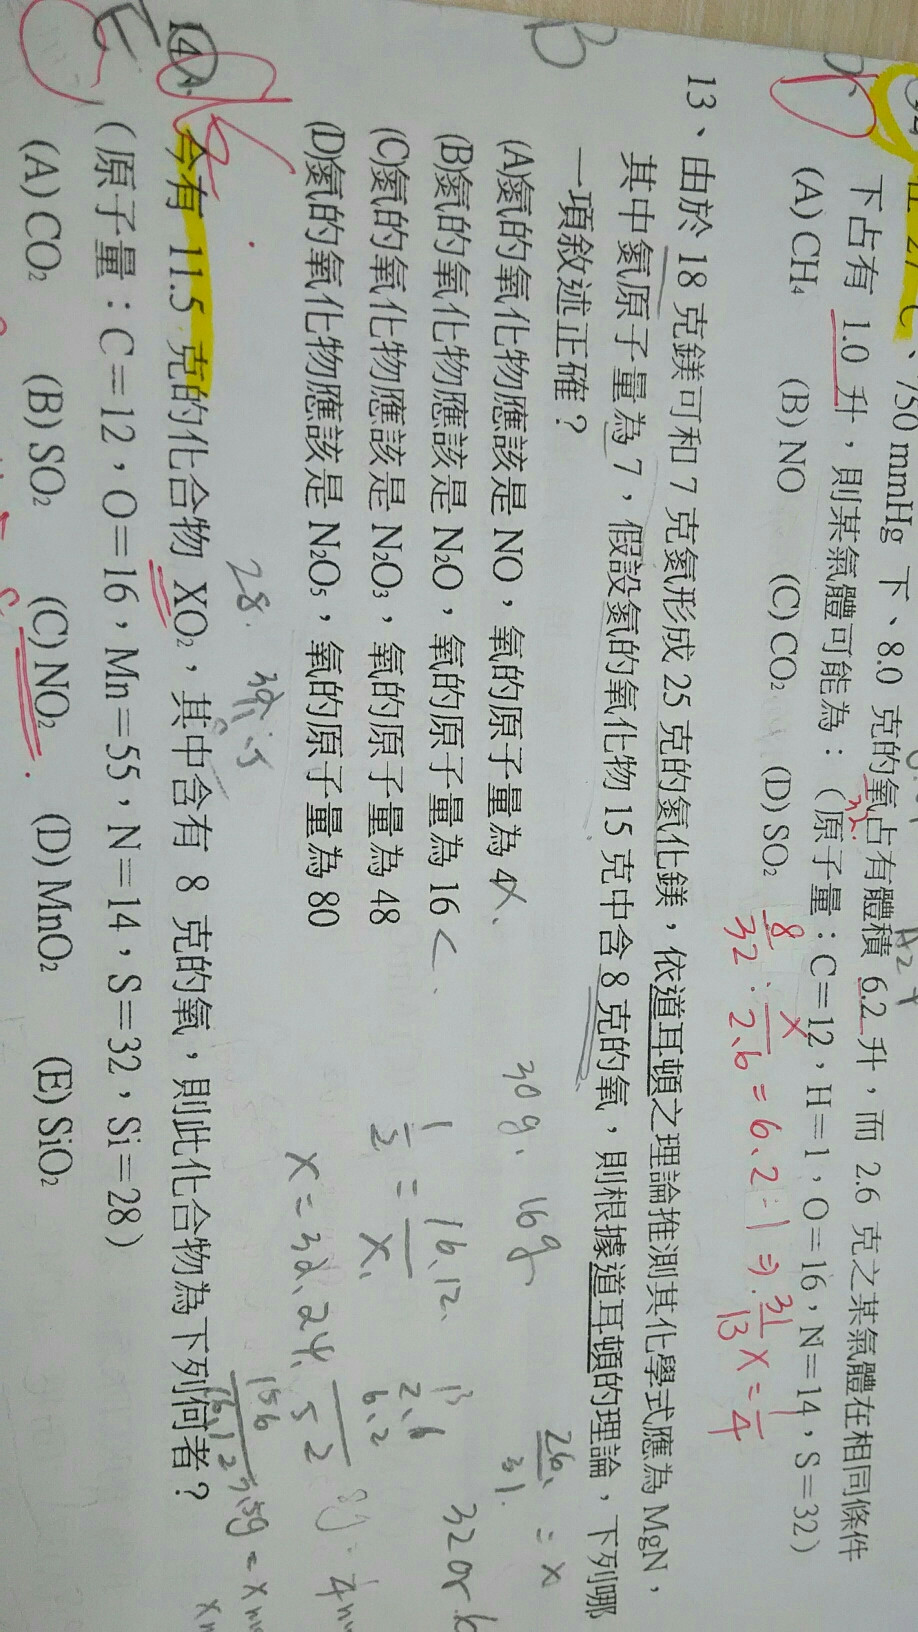 在 27℃、750 mmHg 下、8.0 克的氧占有體積 6.2 升，而 2.6 克之某氣體在相同條件
下占有 1.0 升，則某氣體可能為：（原子量：C＝12，H＝1，O＝16，N＝14，S＝32）
(A) CH₄ (B) NO (C) CO₂ (D) SO₂
32
8/32 : x/2.6 = 6.2 : 1 ⇒ 31/13 x = 1/4
B
13、由於 18 克鎂可和 7 克氮形成 25 克的氮化鎂，依道耳頓之理論推測其化學式應為 MgN，
其中氮原子量為 7，假設氮的氧化物 15 克中含 8 克的氧，則根據道耳頓的理論，下列哪
一項敘述正確？
(A)氮的氧化物應該是 NO，氧的原子量為 4
(B)氮的氧化物應該是 N₂O，氧的原子量為 16
(C)氮的氧化物應該是 N₂O₃，氧的原子量為 48
(D)氮的氧化物應該是 N₂O₅，氧的原子量為 80
30g、16g
26/31 = x
16.12
2.6
6.2
x = 32、24
28.
156
16.12
14、今有 11.5 克的化合物 XO₂，其中含有 8 克的氧，則此化合物為下列何者？
3.5g =
（原子量：C＝12，O＝16，Mn＝55，N＝14，S＝32，Si＝28）
(A) CO₂ (B) SO₂ (C) NO₂ (D) MnO₂ (E) SiO₂